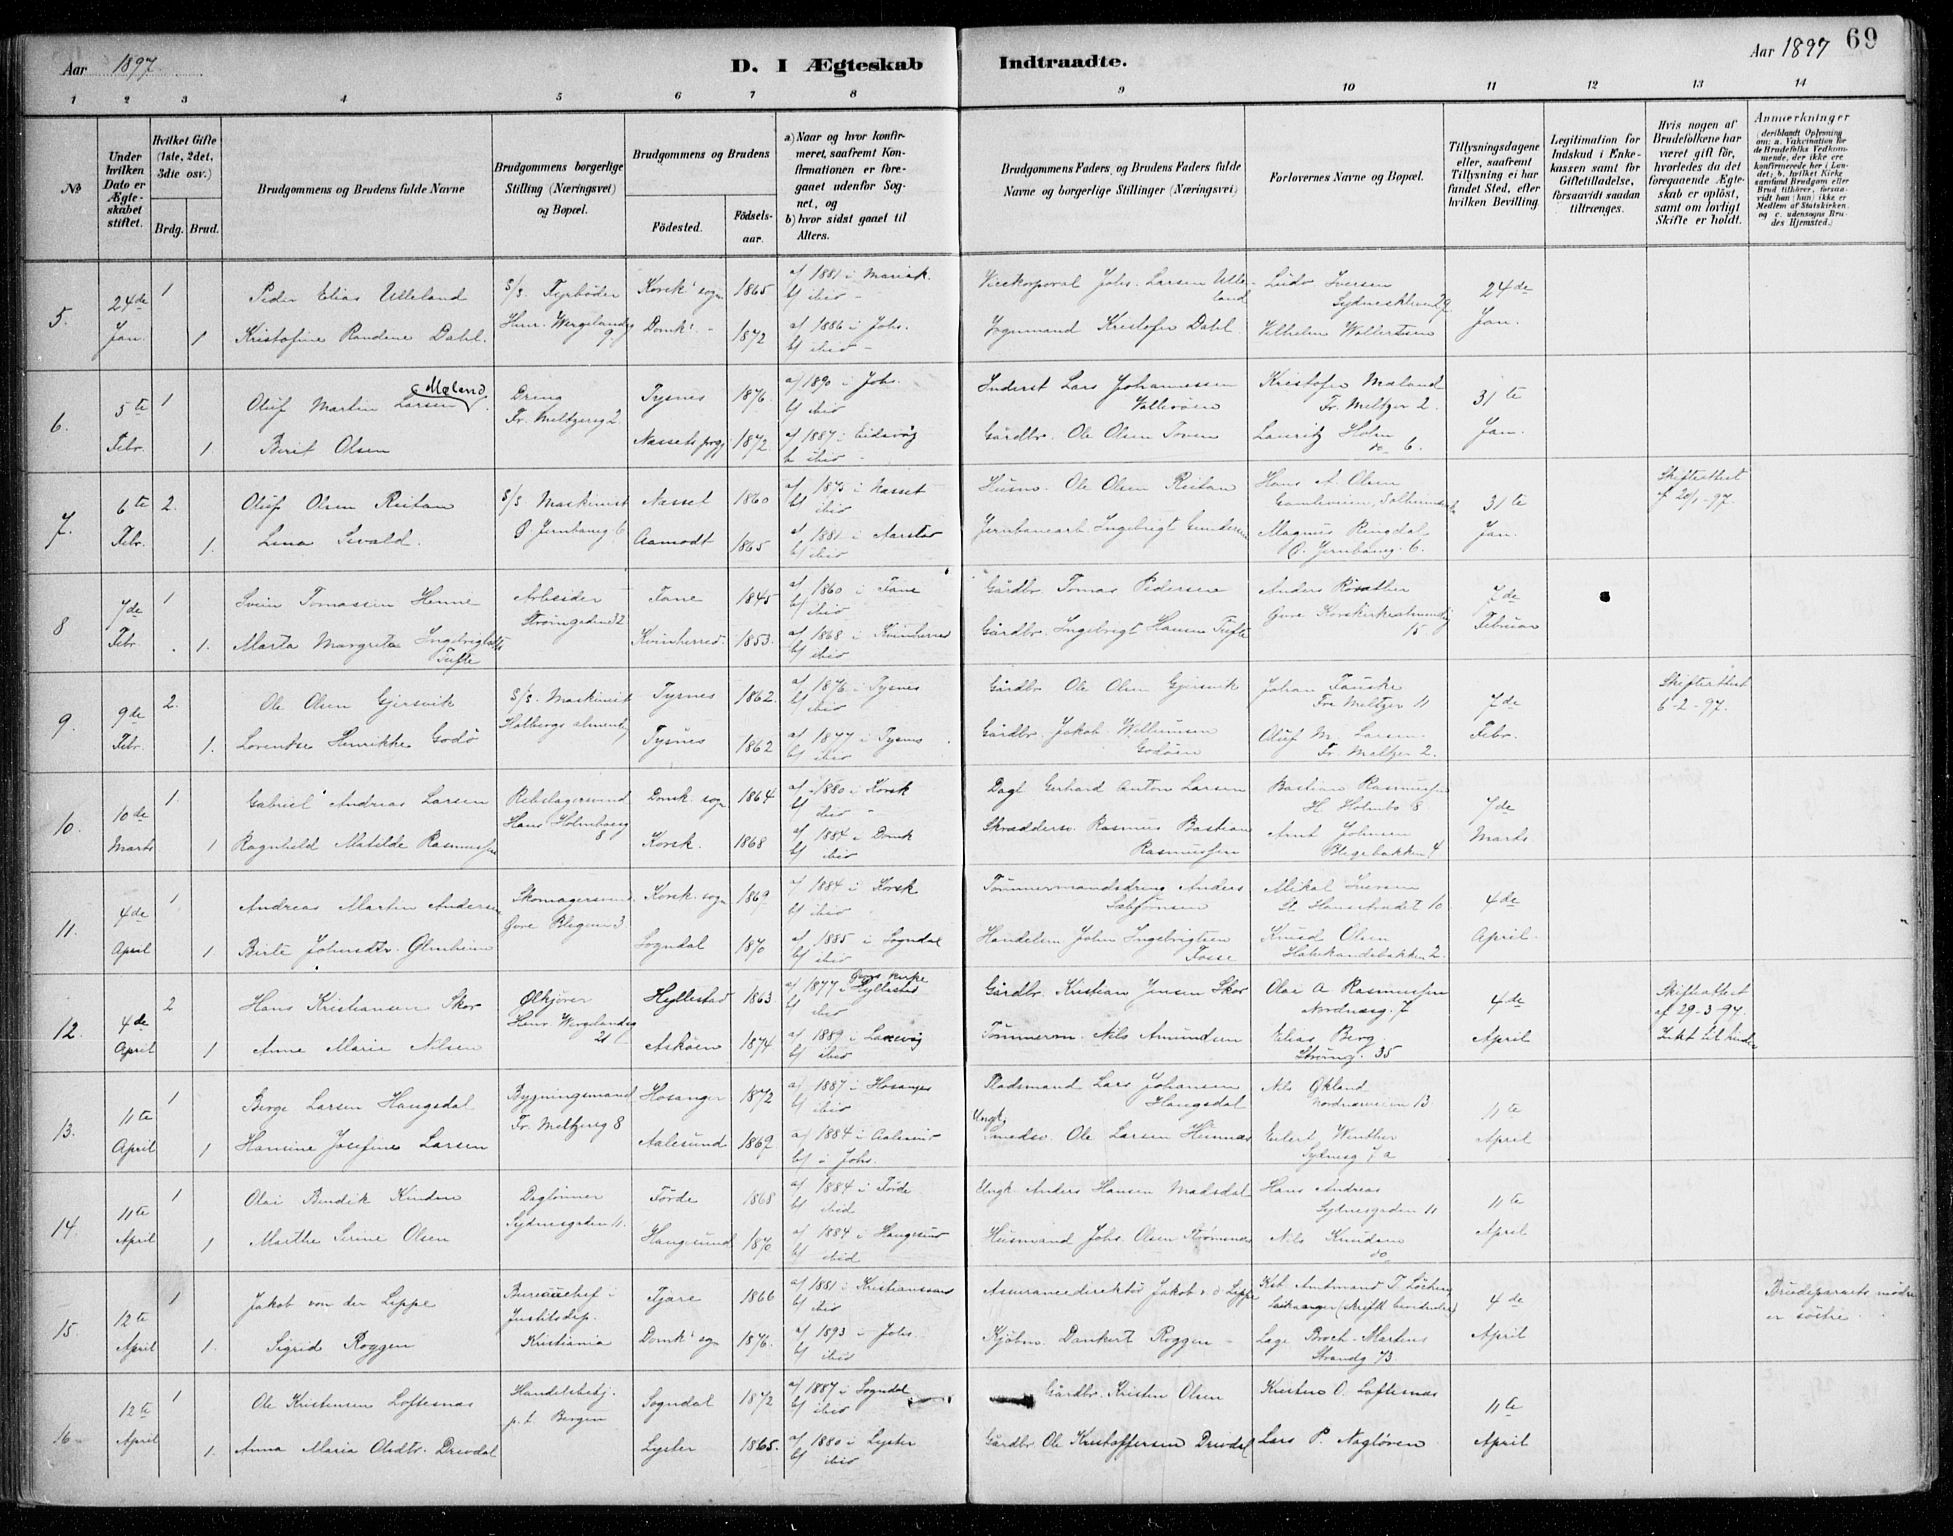 Aar 1897.
D. I Ægteskab Indtraadte.
Aar 1897
69
1 2 3 4 5 6 7 8 9 10 11 12 13 14
No
Under hvilken Dato er Ægteskabet stiftet.
Hvilket Gifte (1ste, 2det, 3die osv.)
Brdg. Brud.
Brudgommens og Brudens fulde Navne
Brudgommens borgerlige Stilling (Næringsvei) og Bopæl.
Brudgommens og Brudens
Födested.
Födsels-aar.
a) Naar og hvor konfirmeret, saafremt Konfirmationen er foregaaet udenfor Sognet, og
b) hvor sidst gaaet til Alters.
Brudgommens Faders, og Brudens Faders fulde Navne og borgerlige Stillinger (Næringsvei)
Forlovernes Navne og Bopæl.
Tillysningsdagene eller, saafremt Tillysning ei har fundet Sted, efter hvilken Bevilling.
Legitimation for Indskud i Enkekassen samt for Giftetilladelse, forsaavidt saadan tiltrænges.
Hvis nogen af Brudefolkene har været gift för, hvorledes da det foregaaende Ægteskab er oplöst, samt om lovligt Skifte er holdt.
Anmærkninger
5. 24de Jan. 1 Peder Elias Ulleland S/S. Fyrböder Korsk' sogn 1865 a/ 1881 i Mariak. b/ ibid Johs. Larsen Ulleland Ludv Iversen 24de Jan.
1 Kristofine Randine Dahl. Henr. Wergelandsg 9. Domk' 1872 a/ 1886 i Johs. b/ ibid Kristofer Dahl Vilhelm Wollertsen
6. 5te Febr. 1 Oluf Martin Larsen Mæland Dreng Fr. Meltzersg 2 Tysnes 1876 a/ 1890 i Johs. b/ ibid Inderst Lars Johannessen Kristofer Mæland Fr. Meltzer 2. 31te Jan.
1 Berit Olsen Nassets prgj 1872. a/ 1887 i Eidsvåg b/ ibid Gårdbr. Ole Olsen Lauritz Holm do 6.
7. 6te Febr. 2. Oluf Olsen Reitan S/S Maskinist Ø. Jernbaneg. 6 Nasset 1860 a/ 1875 i Nasset b/ ibid Husm. Ole Olsen Reitan Hans A. Olsen 31te Jan. Skifteattest af 20/1 -97.
1. Lina Sivald. Aamodt 1865 a/ 1881 i Aarstad b/ ibid Jernbanearb Ingebrigt Gundersen Magnus Ringdal Ø. Jernbaneg. 6.
8 7de Febr. 1 Svein Tomassen Henne Arbeider Fane 1845 a/ 1860 i Fane b/ ibid Gårdbr. Tomas Pedersen Anders 7de Februar
1. Marta Margreta Ingebrigtsdtr Tufte Kvinherred 1853. a/ 1868 i Kvinherred b/ ibid Gårdbr. Ingebrigt Hansen Tufte Övre Korskirkealmending 15
9. 9de Febr. 2. Ole Olsen Gjersvik S/S. Maskinist Holbergs alment Tysnes 1862. a/ 1876 i Tysnes b/ ibid Gårdbr. Ole Olsen Gjersvik Johan Fauske Fre Meltzer 11 7de Febr. Skifteattest 6-2-97.
1. Lorentse Henrikke Godö Tysnes 1862 a/ 1877 i Tysnes b/ ibid Gårdbr. Jakob Godöen Oluf M. Larsen Fr. Meltzer 2.
10. 10de Marts 1. Gabriel Andreas Larsen Rebslagersvend Hans Holmboesg 8 Domk. sogn 1864 a/ 1880 i Korsk b/ ibid Dagl Gerhard Anton Larsen Bastian Rasmussen H Holmbo 8 7de Marts.
1 Ragnhild Matilde Rasmussen Korsk. 1868 a/ 1884 i Domk b/ ibid Skræddersv. Rasmus Bastian Rasmussen Arnt Johnsen Blegebakken 4
11. 4de April 1 Andreas Martin Andersen Skomagersvend Övre Blegevei 3 Korsk. sogn 1869 a/ 1884 i Korsk b/ ibid Tömmermandsdreng Anders Mikal Iversen St Hansstrædet 10 4de April.
1 Birte Johnsdtr. Sogndal 1870 a/ 1885 i Sogndal b/ ibid Handelsm John Ingebrigtsen Fosse Knud Olsen
12. 4de April 2 Hans Kristiansen Skor Ölkjörer Henr Wergelandsg 21 Hyllestad 1863 a/ 1877 i Hyllestad b/ ibid Gårdbr. Kristian Jensen Skor Olai A Rasmussen Nordnæsg. 7 4de April Skifteattest af 29-3-97. Intet til hinder
1 Anne Marie Nilsen Askøen 1874 a/ 1889 i Laxevåg b/ ibid Tömmerm. Nils Amundsen Elias Berg. Strang. 35
13. 11te April 1 Berge Larsen Haugsdal Bygningsmand Fr. Meltzersg 8 Hosanger 1872 a/ 1887 i Hosanger b/ ibid Pladsmand Lars Johansen Haugsdal Nils Økland Nordnæsveien 13 11te April
1 Hansine Josefine Larsen Aalesund 1869 a/ 1884 i Aalesund b/ i Johs. Ungk. Smedsv. Ole Larsen Eilert Winther Sydnesg 7 a
14. 11te April 1 Olai Bendik Daglönner Sydnesgaden 11. Förde 1868 a/ 1884 i Förde b/ ibid Ungk. Anders Hansen Madsdal Hans Andreas Sydnesgaden 11 11te April
1 Marthe Serine Olsen Haugesund 1870 a/ 1884 i Haugesund b/ ibid Husmand Johs. Olsen Nils Knudsen do
15. 12te April 1 Jakob von der Lippe Bureauchef i Justitsdep. Kristiania Fjære 1866 a/ 1881 i Kristianssand b/ ibid Assurancedirektör Jakob v. d Lippe Amtmand T. Löchen Leikanger 4de April Brudeparrets mödre er söstre.
1. Sigrid Roggen Domk' sogn 1876. a/ 1893 i Johs. b/ ibid Kjöbm. Dankert Roggen Lage Broch Martens Strandg 73
16 12te April 1 Ole Kristensen Loftesnæs Handelsbetj. p. t. Bergen Sogndal 1872 a/ 1887 i Sogndal b/ ibid Gårdbr. Kristen Olsen Kristen O. Loftesnæs 11te April
1 Anna Maria Olsdtr. Drivdal Lyster 1865. a/ 1880 i Lyster b/ ibid Gårdbr. Ole Kristoffersen Drivdal Lars P. Naglören